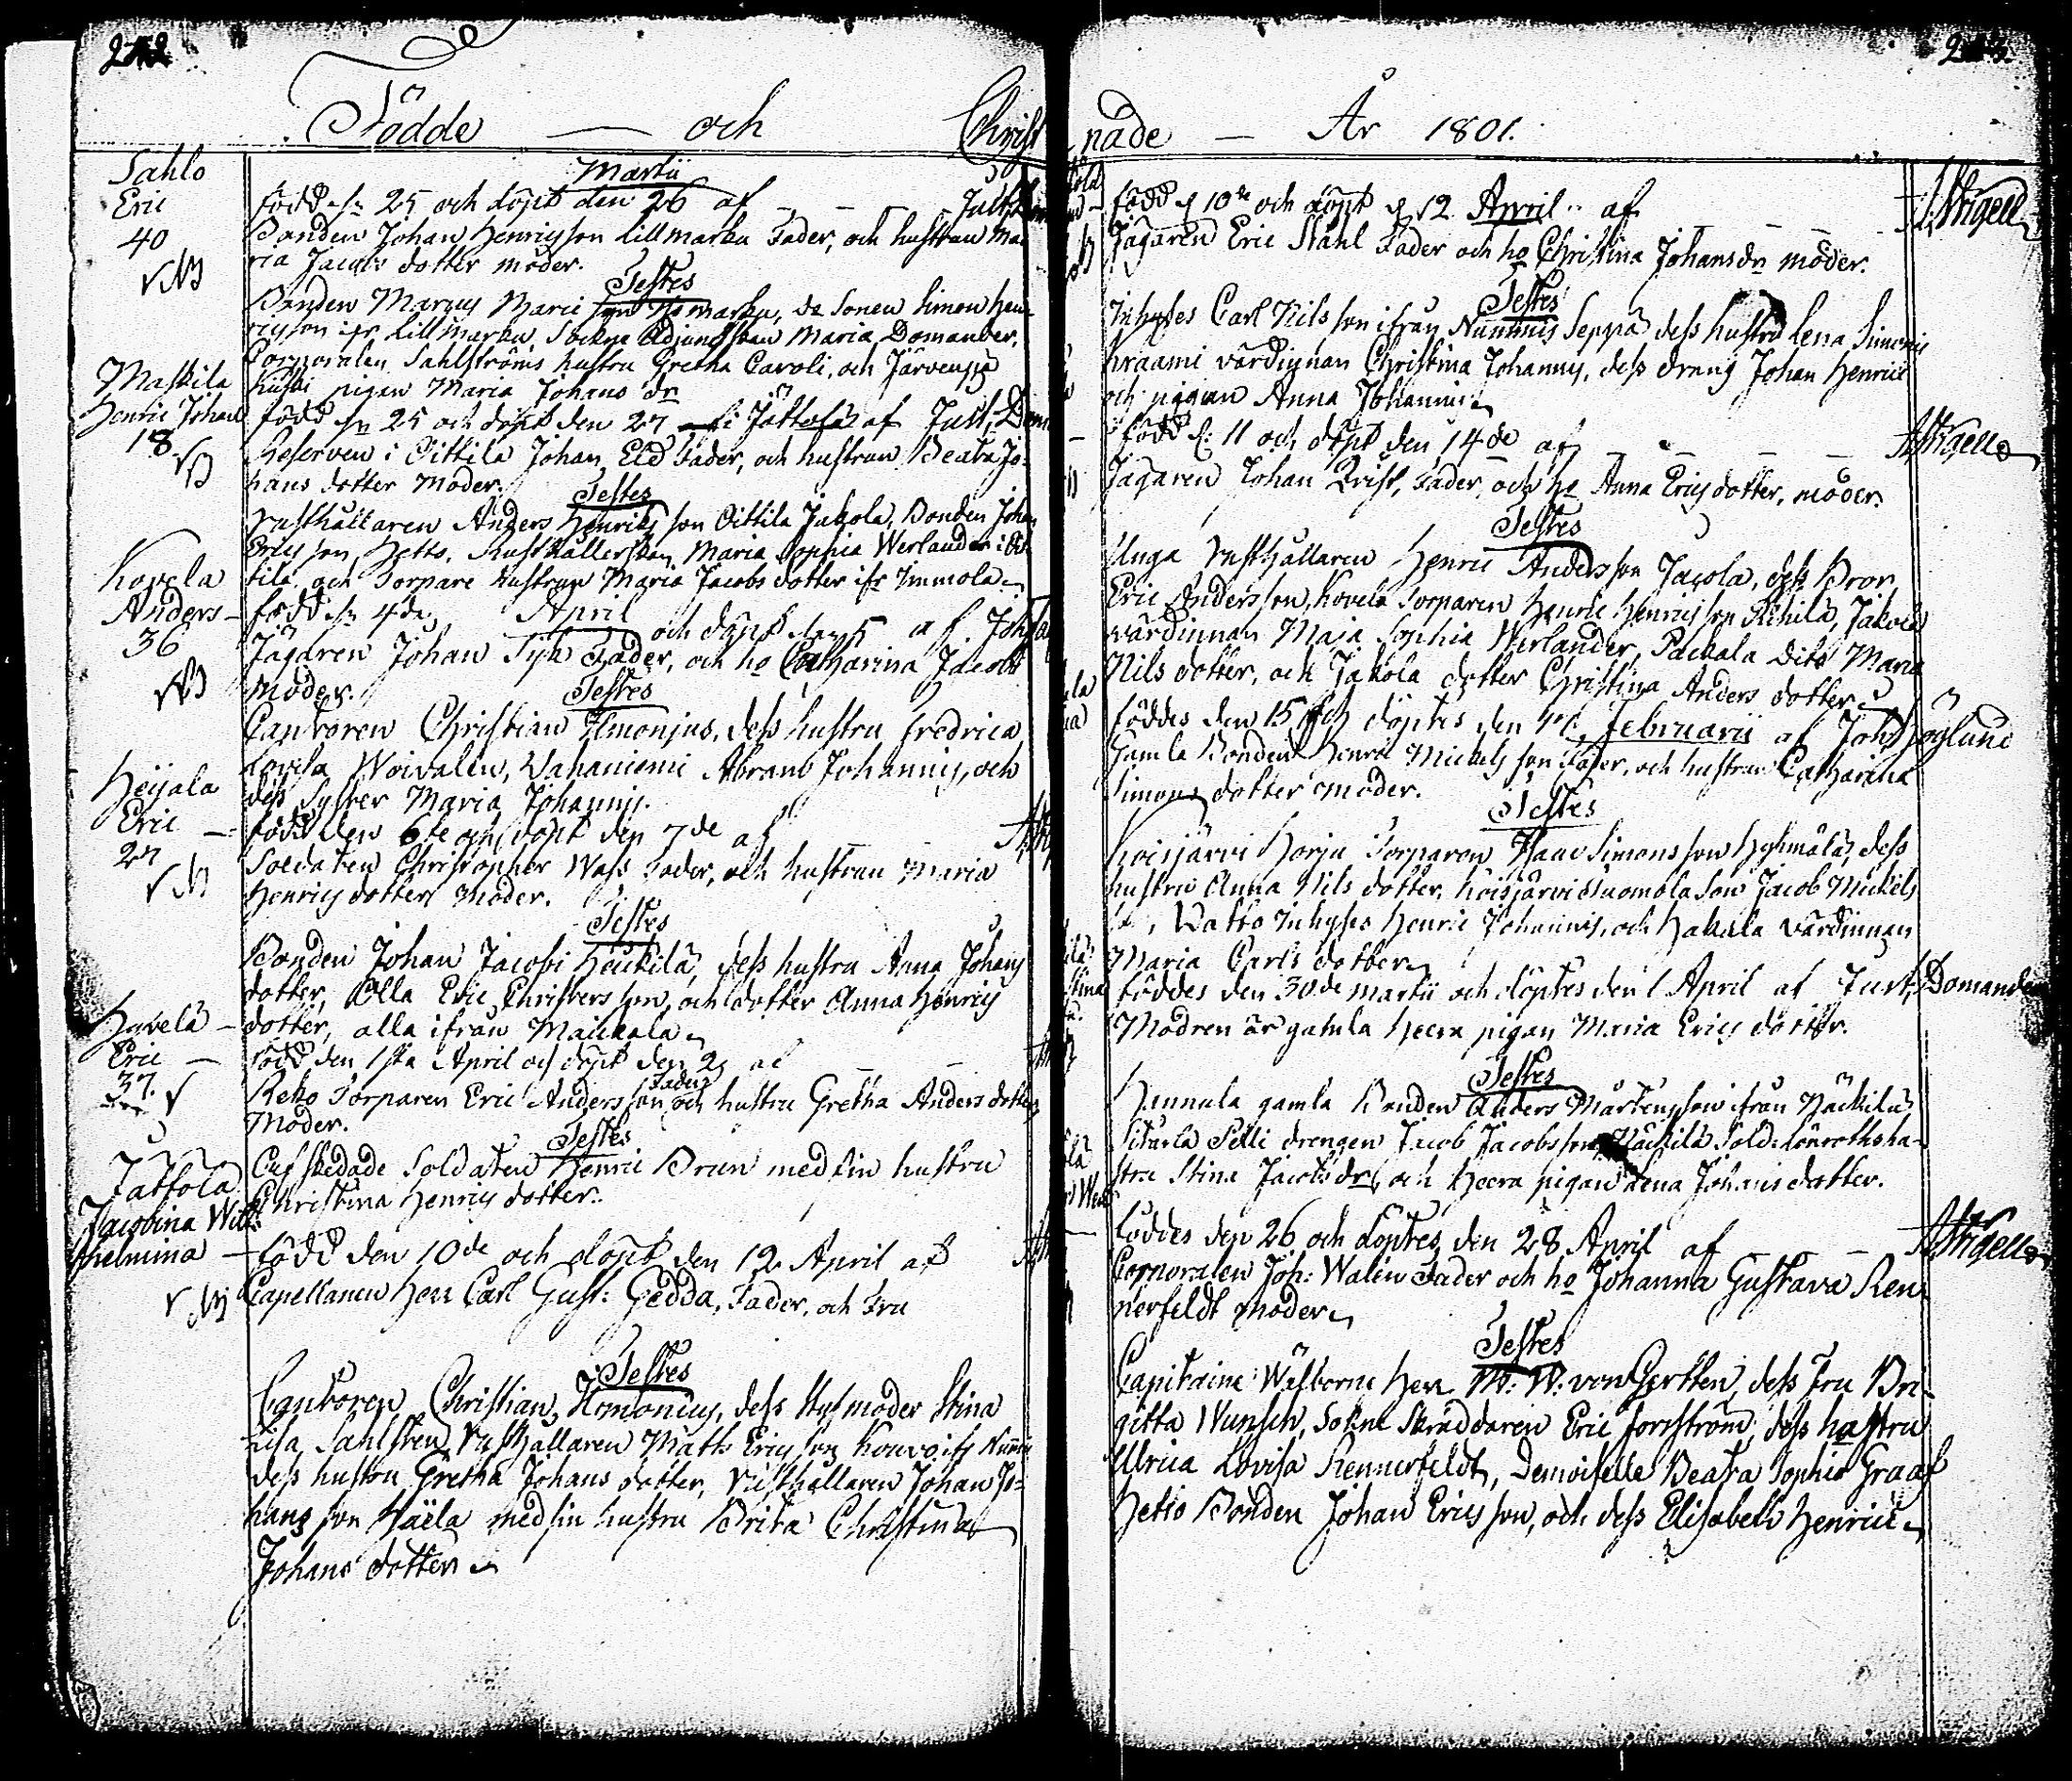 242
Födde — och Christ
Sahlo
Eric
40
Martii
född d: 25 och döpt den 26 af Just:
Bonden Johan Henricsson Lillmarku Fader, och hustrun Ma
ria Jacobs dotter moder.
Testes
Bonden Marcus Marci son, do Sonen Simon Hen
ricsson ifr Lillmarku, Sockne Adjunctskan Maria Domander,
Corporalen Sahlströms hustru Gretha Caroli, och Järvenpä
pigan Maria Johans dr
Maskila
Henric Johan
18
född d: 25 och döpt den 27 i Jättölä af Just: Dom
Reserven i Oittila Johan Eld Fader, och hustrun Beata Jo-
hans dotter Moder.
Testes
Rusthållaren Anders Henrics son Oittila Jakola, Bonden Johan
Erics son Hetto, Rusthållerskan Maria Sophia Werlander i Oit
tila och Torpare hustrun Maria Jacobs dotter ifr Immola
Kovela
Anders —
36
född d: 4de April och döpt den 5 af Joh
Jägaren Johan Fader, och ho Catharina Jacobs
Moder.
Testes
Cantoren Christian Limonius, dess hustru Fredrica
Lovisa Woivalin, Wahaniemi Abram Johannis, och
dess Syster Maria Johannis.
Heijala
Eric —
27
född den 6te och döpt den 7de af
Soldaten Christopher Wass Fader, och hustrun Maria
Henrics dotter Moder.
Testes
Bonden Johan Jacobi Heikilä, dess hustru Anna Johans
dotter, Olla Eric Christers son, och dotter Anna Henrics
dotter, alla ifrån Maikkala
Hyvelä —
Eric —
37.
född den 1sta April och döpt den 2 af
Retto Torparen Eric Anders son Fader och hustru Gretha Anders dotter
Moder.
Testes
Afskedade Soldaten Henric Brun med sin hustru
Christina Henrics dotter.
Jättölä
Jacobina Wil-
helmina —
född den 10de och döpt den 12 April af
Capellanen Herr Carl Gust: Gedda, Fader, och Fru
Testes
Cantoren Christian Limonius, dess Styfmoder Stina
Lisa Sahlsten, Rusthållaren Matts Erics son Kouvo ifr Nummis
dess hustru Gretha Johans dotter, Rusthållaren Johan Jo-
hans son Häelä med sin hustru Brita Christina
Johans dotter
243.
nade — År 1801.
född d 10de och döpt d 12 April af AStigell
Jägaren Eric Ståhl Fader och ho Christina Johansdr moder.
Testes
Inhyses Carl Nils son ifrån Nummis Seppä dess hustru Lena Simonis
Kraami värdinnan Christina Johannis, dess dräng Johan Henrici
och pigan Anna Johannis
född d: 11 och döpt den 14de af AStigell
Jägaren Johan Qvist, Fader, och ho Anna Erics dotter, moder.
Testes
Unga Rusthållaren Henric Anders son Jacola, dess Bror
Eric Anders son, Kovela Torparen Henric Henrics son Kihilä, Jakola
värdinnan Maja Sophia Werlander, Packala dito Maria
Nils dotter, och Jakola dotter Christina Anders dotter.
föddes den 15 och döptes den 17 Februarii af Joh: Höglund
Gamla Bonden Henric Mickels son Fader, och hustrun Catharina
Simons dotter moder.
Testes
Koisjärvi Horju Torparen Isaac Simons son, dess
hustru Anna Nils dotter, Koisjärvi Suomola son Jacob Mickels
son, Watto Inhyses Henric Johannis, och Hakala värdinnan
Maria Carls dotter
föddes den 30de martii och döptes den 1 April af Just: Domander
Modren är gamla Heera pigan Maria Erics dotter.
Testes
Hunnula gamla Bonden Anders Mårtens son ifrån Näckilä
Sitarla Pelli drengen Jacob Jacobs son Näckilä Sold: Lönroths hu-
stru Stina Jacobs dr, och Heera pigan Lena Johans dotter.
föddes den 26 och döptes den 28 April af AStigell
Corporalen Joh: Walén Fader och ho Johanna Gustava Ren-
nerfeldt moder
Testes
Capitaine Wälborne Herr M: W: von Gertten, dess Fru Bri-
gitta Wunsch, Sockne Skräddaren Eric Forsström, dess hustru
Ulrica Lovisa Rennerfeldt, Demoiselle Beata Sophia Graaf
Hetto Bonden Johan Erics son, och dess Elisabeth Henrici